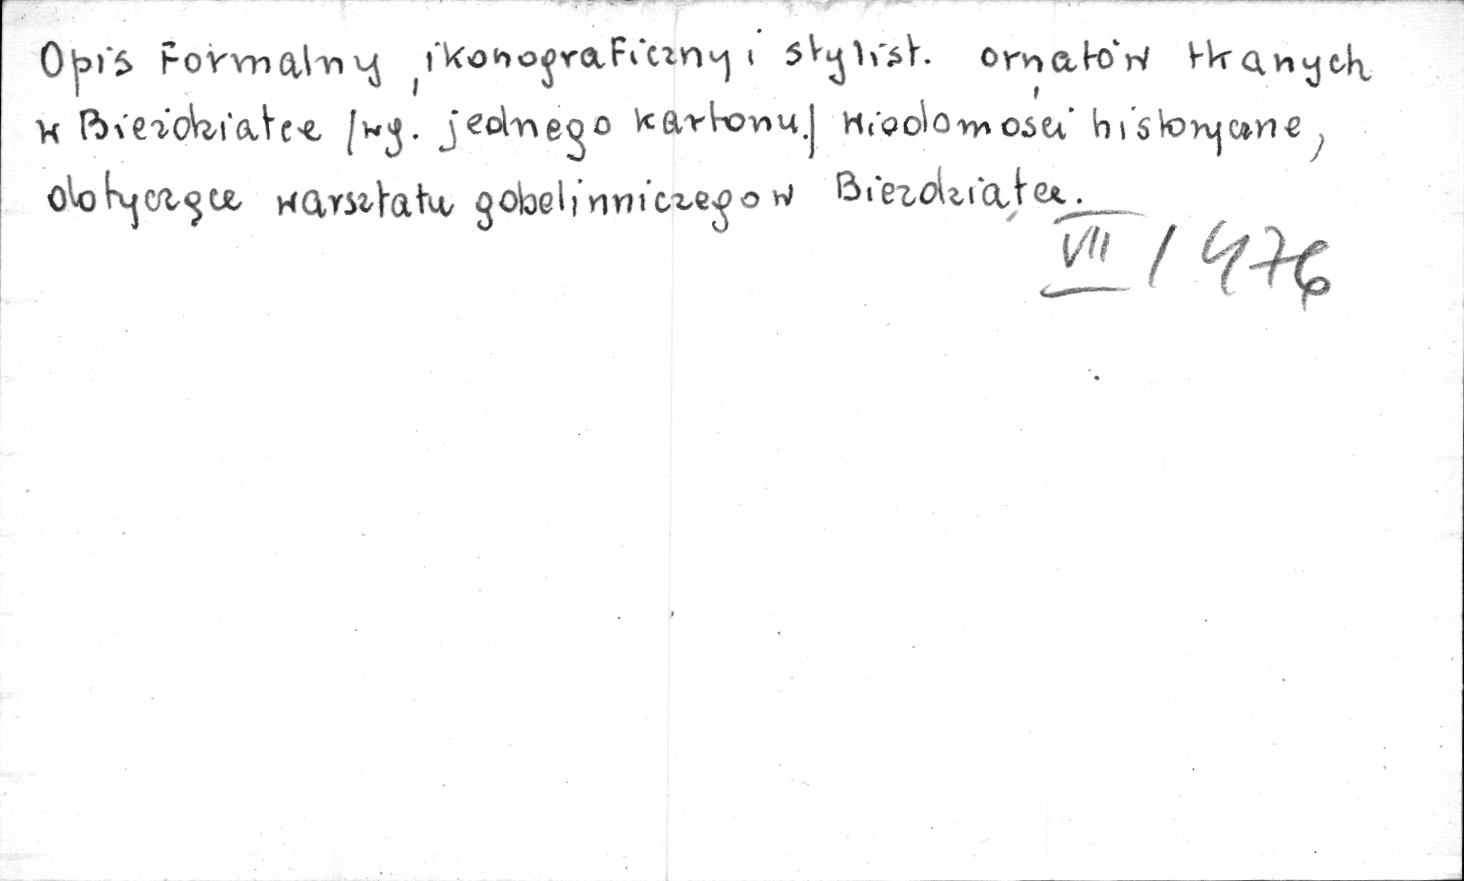 Opis Formalny, ikonograficzny i stylist. ornatów tkanych
w Bieździatce /wg. jednego kartonu./ wiadomości historyczne,
dotyczące warsztatu gobelinniczego w Bieździatce.
VII / 476